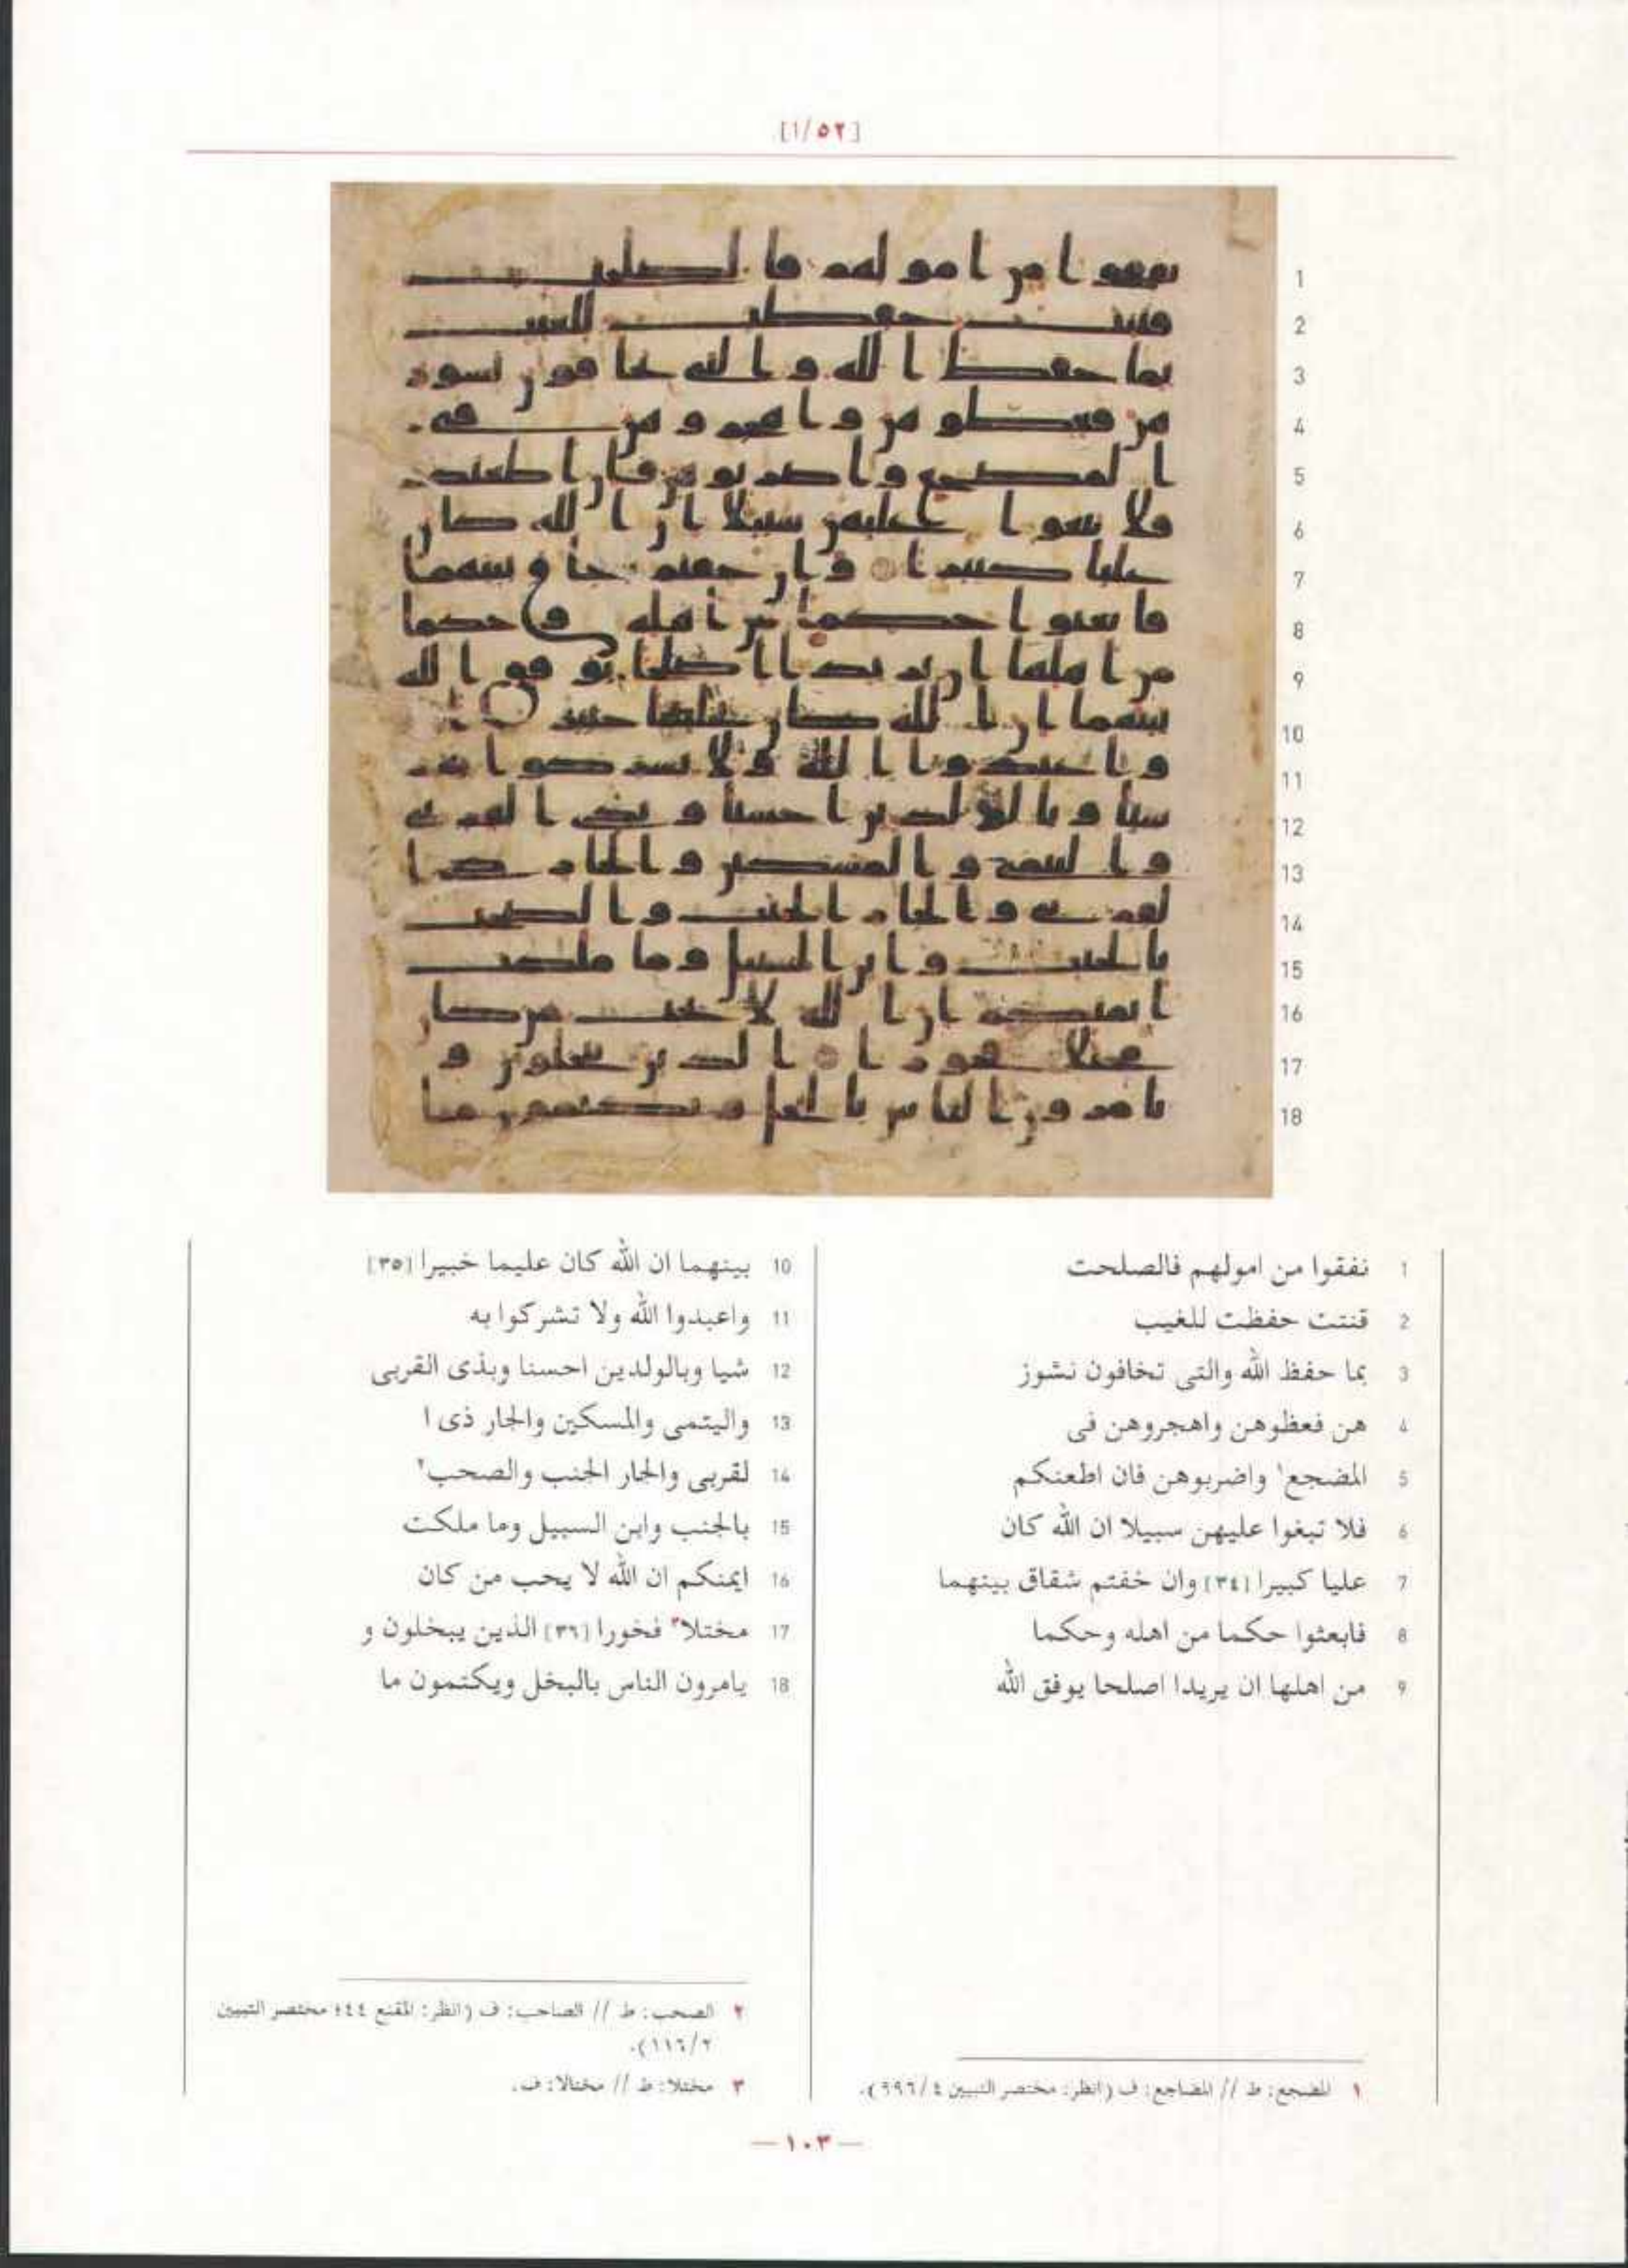 [١/٥٢]
1 نفقوا من امولهم فالصلحت
2 قنتت حفظت للغيب
3 بما حفظ الله والتى تخافون نشوز
4 هن فعظوهن واهجروهن فى
5 المضجع١ واضربوهن فان اطعنكم
6 فلا تبغوا عليهن سبيلا ان الله كان
7 عليا كبيرا [٣٤] وان خفتم شقاق بينهما
8 فابعثوا حكما من اهله وحكما
9 من اهلها ان يريدا اصلحا يوفق الله
10 بينهما ان الله كان عليما خبيرا [٣٥]
11 واعبدوا الله ولا تشركوا به
12 شيا وبالولدين احسنا وبذى القربى
13 واليتمى والمسكين والجار ذى ا
14 لقربى والجار الجنب والصحب٢
15 بالجنب وابن السبيل وما ملكت
16 ايمنكم ان الله لا يحب من كان
17 مختلا٣ فخورا [٣٦] الذين يبخلون و
18 يامرون الناس بالبخل ويكتمون ما
١ المضجع: ط // المضاجع: ف (انظر: مختصر التبيين ٤/٩٩٦).
٢ الصحب: ط // الصاحب: ف (انظر: المقنع ٤٤؛ مختصر التبيين
٢/١١٦).
٣ مختلا: ط // مختالا: ف.
— ١٠٣ —